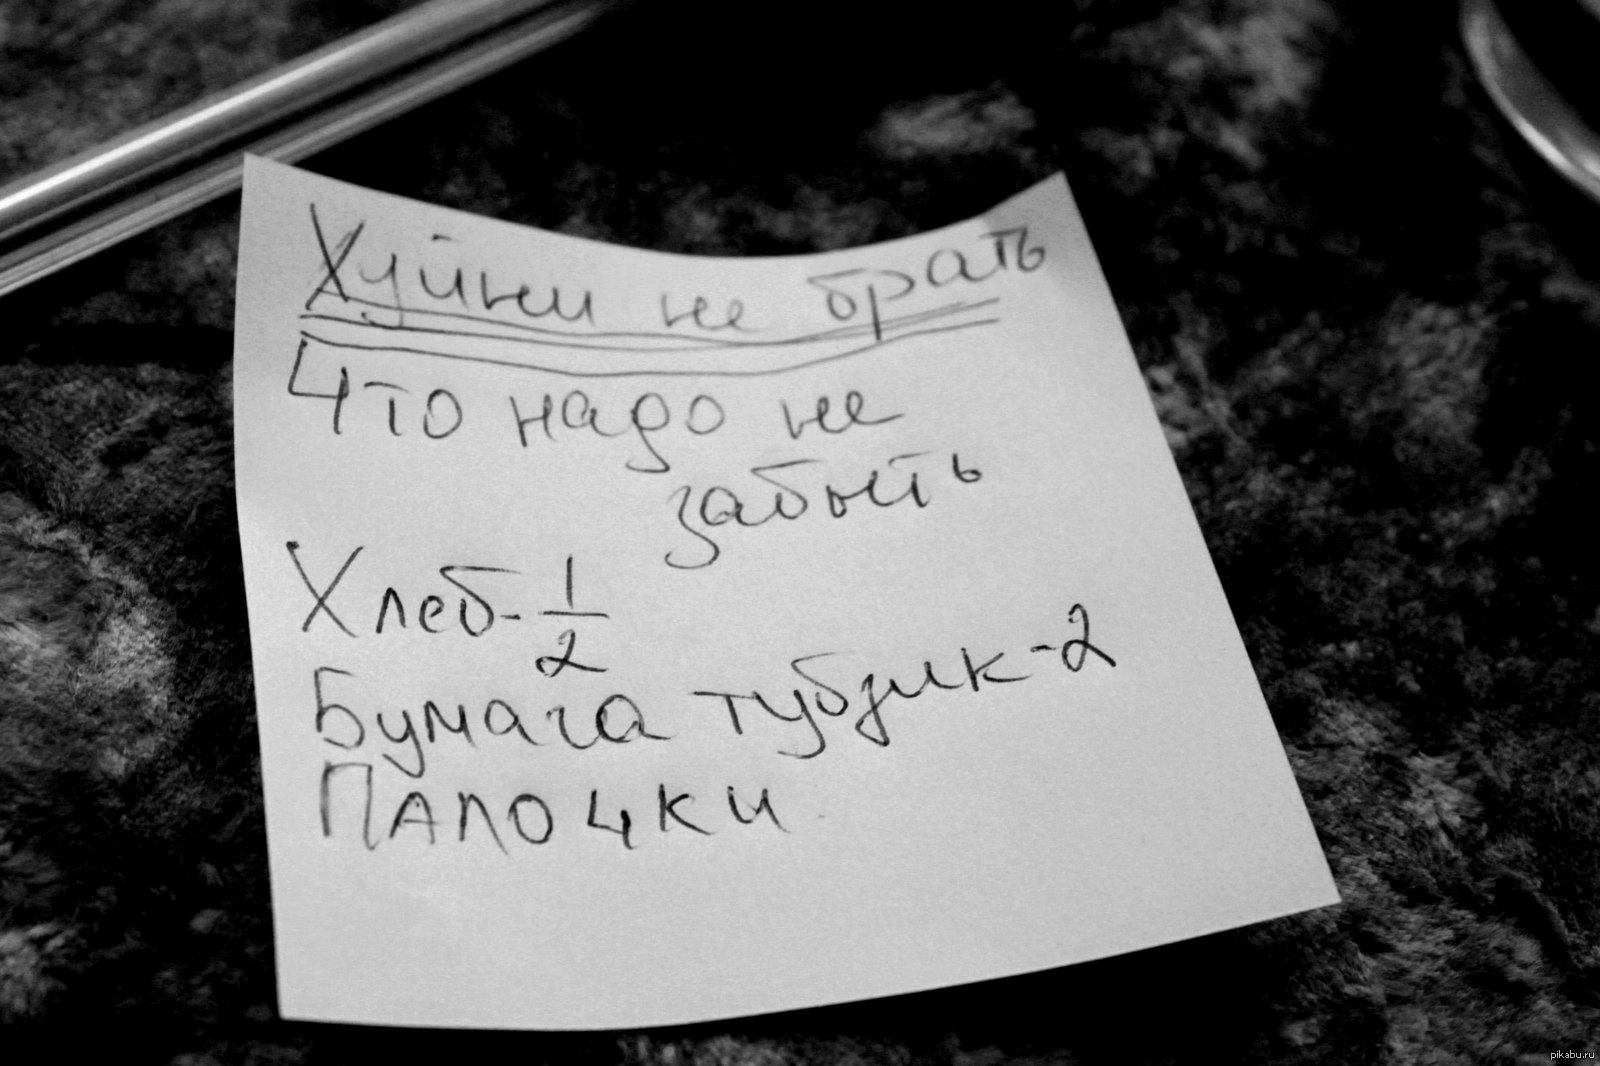 Хуйни не брать
Что надо не
забыть
Хлеб - 1/2
Бумага тубзик - 2
Палочки
pikabu.ru